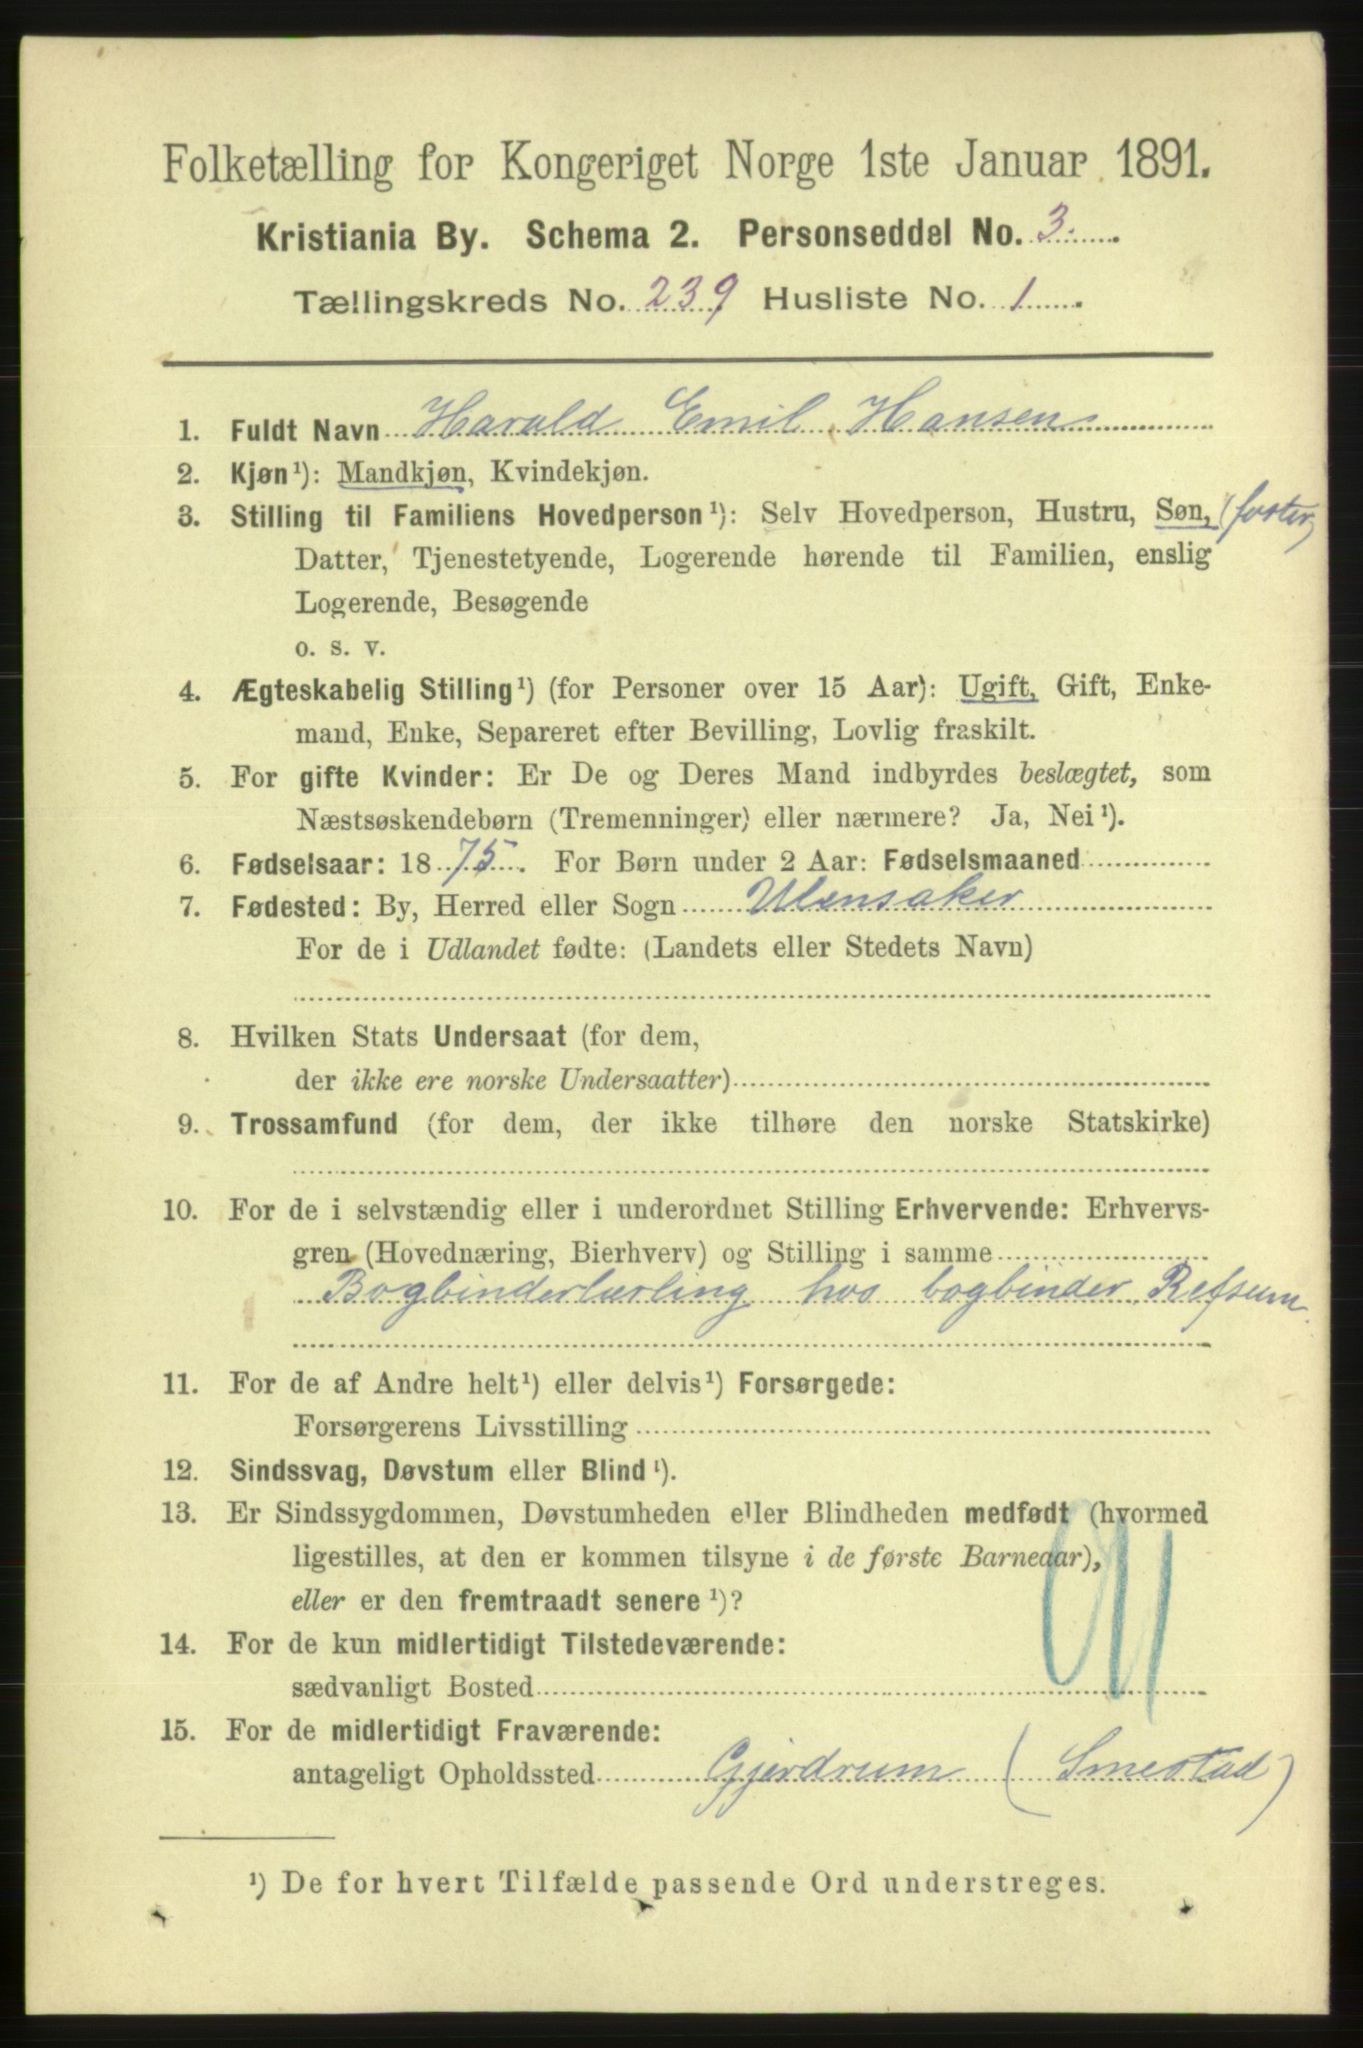 Folketælling for Kongeriget Norge 1ste Januar 1891.
Kristiania By. Schema 2. Personseddel No. 3.
Tællingskreds No. 239 Husliste No. 1.
1. Fuldt Navn Harald Emil Hansen
2. Kjøn¹): Mandkjøn, Kvindekjøn.
3. Stilling til Familiens Hovedperson¹): Selv Hovedperson, Hustru, Søn, (foster)
Datter, Tjenestetyende, Logerende hørende til Familien, enslig
Logerende, Besøgende
o. s. v.
4. Ægteskabelig Stilling¹) (for Personer over 15 Aar): Ugift, Gift, Enke-
mand, Enke, Separeret efter Bevilling, Lovlig fraskilt.
5. For gifte Kvinder: Er De og Deres Mand indbyrdes beslægtet, som
Næstsøskendebørn (Tremenninger) eller nærmere? Ja, Nei¹).
6. Fødselsaar: 1875. For Børn under 2 Aar: Fødselsmaaned
7. Fødested: By, Herred eller Sogn Ulensaker
For de i Udlandet fødte: (Landets eller Stedets Navn)
8. Hvilken Stats Undersaat (for dem,
der ikke ere norske Undersaatter)
9. Trossamfund (for dem, der ikke tilhøre den norske Statskirke)
10. For de i selvstændig eller i underordnet Stilling Erhvervende: Erhvervs-
gren (Hovednæring, Bierhverv) og Stilling i samme
Bogbinderlærling hos bogbinder Refsum.
11. For de af Andre helt¹) eller delvis¹) Forsørgede:
Forsørgerens Livsstilling
12. Sindssvag, Døvstum eller Blind¹).
13. Er Sindssygdommen, Døvstumheden eller Blindheden medfødt (hvormed
ligestilles, at den er kommen tilsyne i de første Barneaar),
eller er den fremtraadt senere¹)?
14. For de kun midlertidigt Tilstedeværende:
sædvanligt Bosted
15. For de midlertidigt Fraværende:
antageligt Opholdssted Gjerdrum (Smestad)
¹) De for hvert Tilfælde passende Ord understreges.